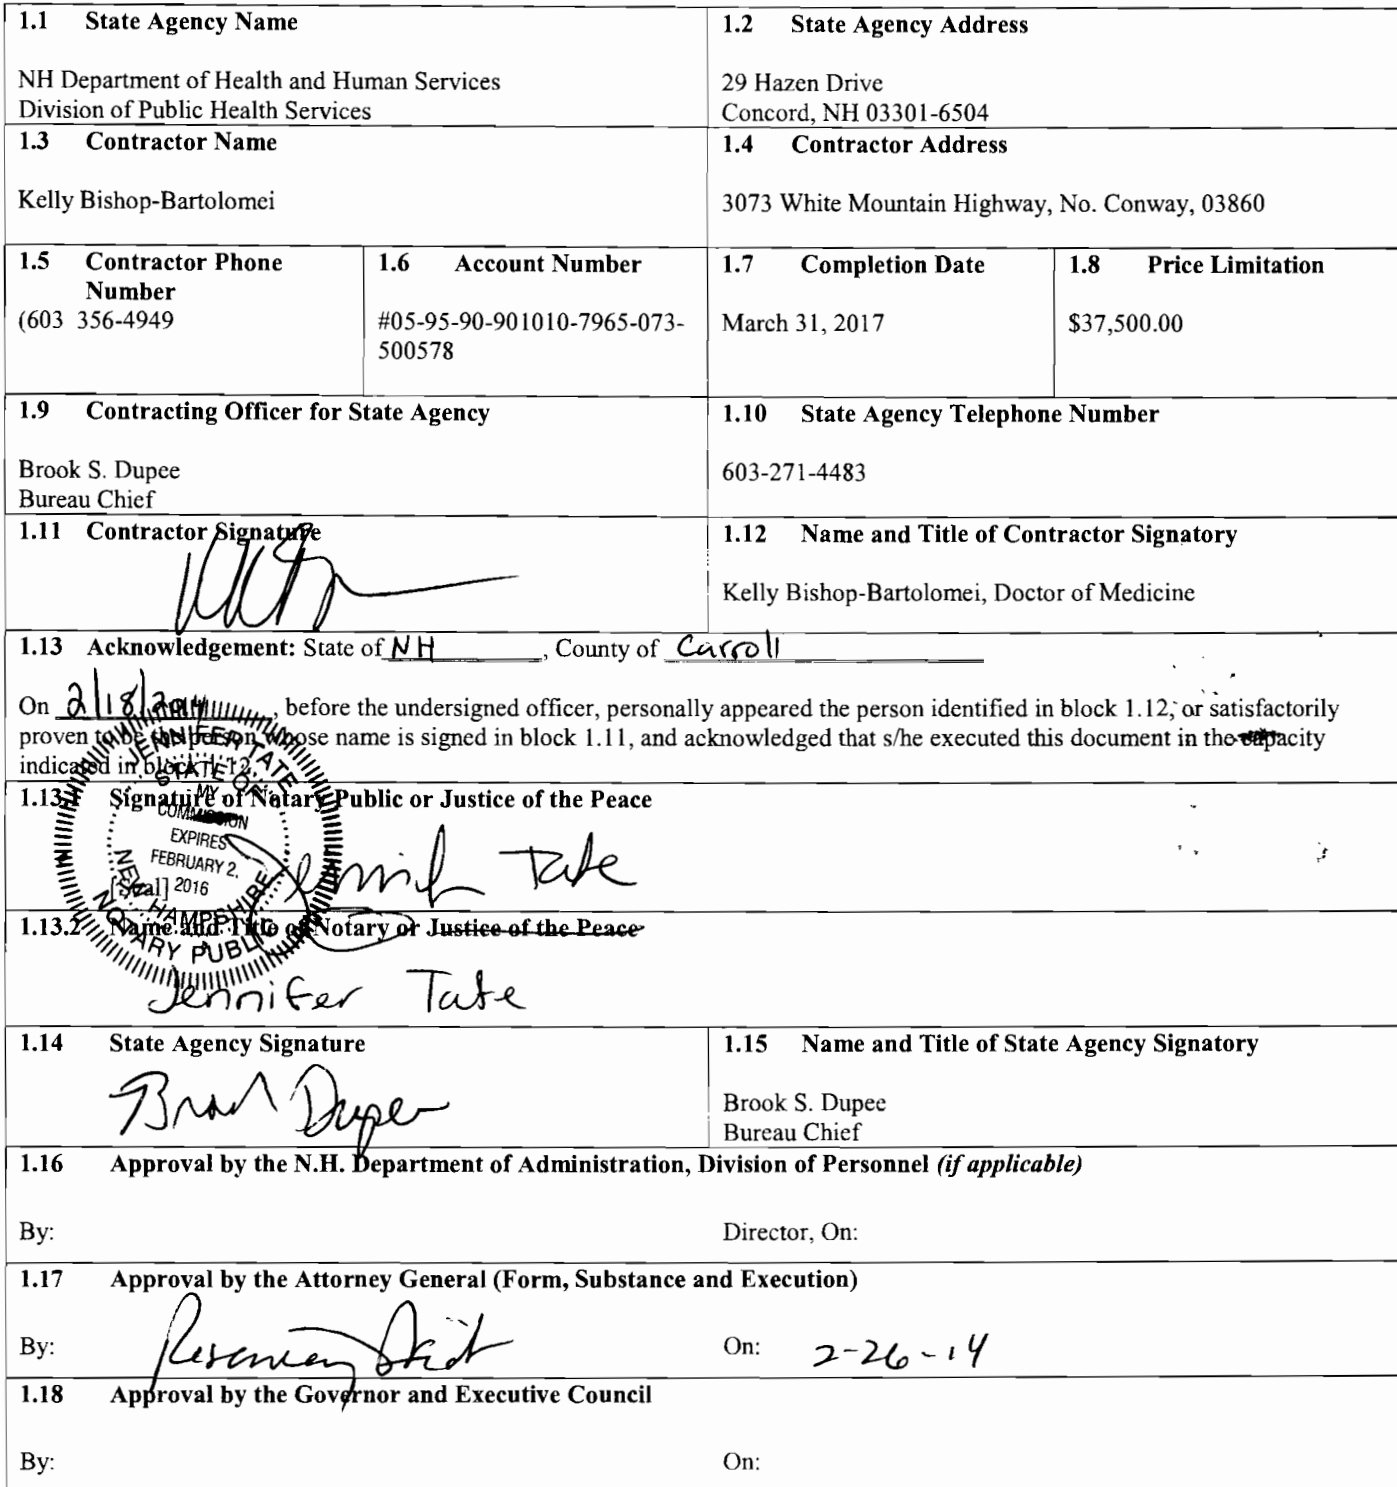 1.1 State Agency Name
NH Department of Health and Human Services
Division of Public Health Services
1.2 State Agency Address
29 Hazen Drive
Concord, NH 03301-6504
1.3 Contractor Name
Kelly Bishop-Bartolomei
1.4 Contractor Address
3073 White Mountain Highway, No. Conway, 03860
1.5 Contractor Phone
Number
(603 356-4949
1.6 Account Number
#05-95-90-901010-7965-073-
500578
1.7 Completion Date
March 31, 2017
1.8 Price Limitation
$37,500.00
1.9 Contracting Officer for State Agency
Brook S. Dupee
Bureau Chief
1.10 State Agency Telephone Number
603-271-4483
1.11 Contractor Signature
1.12 Name and Title of Contractor Signatory
Kelly Bishop-Bartolomei, Doctor of Medicine
1.13 Acknowledgement: State of NH, County of Carroll
On 2/18/2014, before the undersigned officer, personally appeared the person identified in block 1.12, or satisfactorily
proven to be the person whose name is signed in block 1.11, and acknowledged that s/he executed this document in the capacity
indicated in block 1.12.
1.13.1 Signature of Notary Public or Justice of the Peace
Jennifer Tate
[Seal]
JENNIFER TATE
STATE OF
MY
COMMISSION
EXPIRES
FEBRUARY 2,
2016
NEW HAMPSHIRE
NOTARY PUBLIC
1.13.2 Name and Title of Notary or Justice of the Peace
Jennifer Tate
1.14 State Agency Signature
Brook Dupee
1.15 Name and Title of State Agency Signatory
Brook S. Dupee
Bureau Chief
1.16 Approval by the N.H. Department of Administration, Division of Personnel (if applicable)
By:
Director, On:
1.17 Approval by the Attorney General (Form, Substance and Execution)
By:
On: 2-26-14
1.18 Approval by the Governor and Executive Council
By:
On: